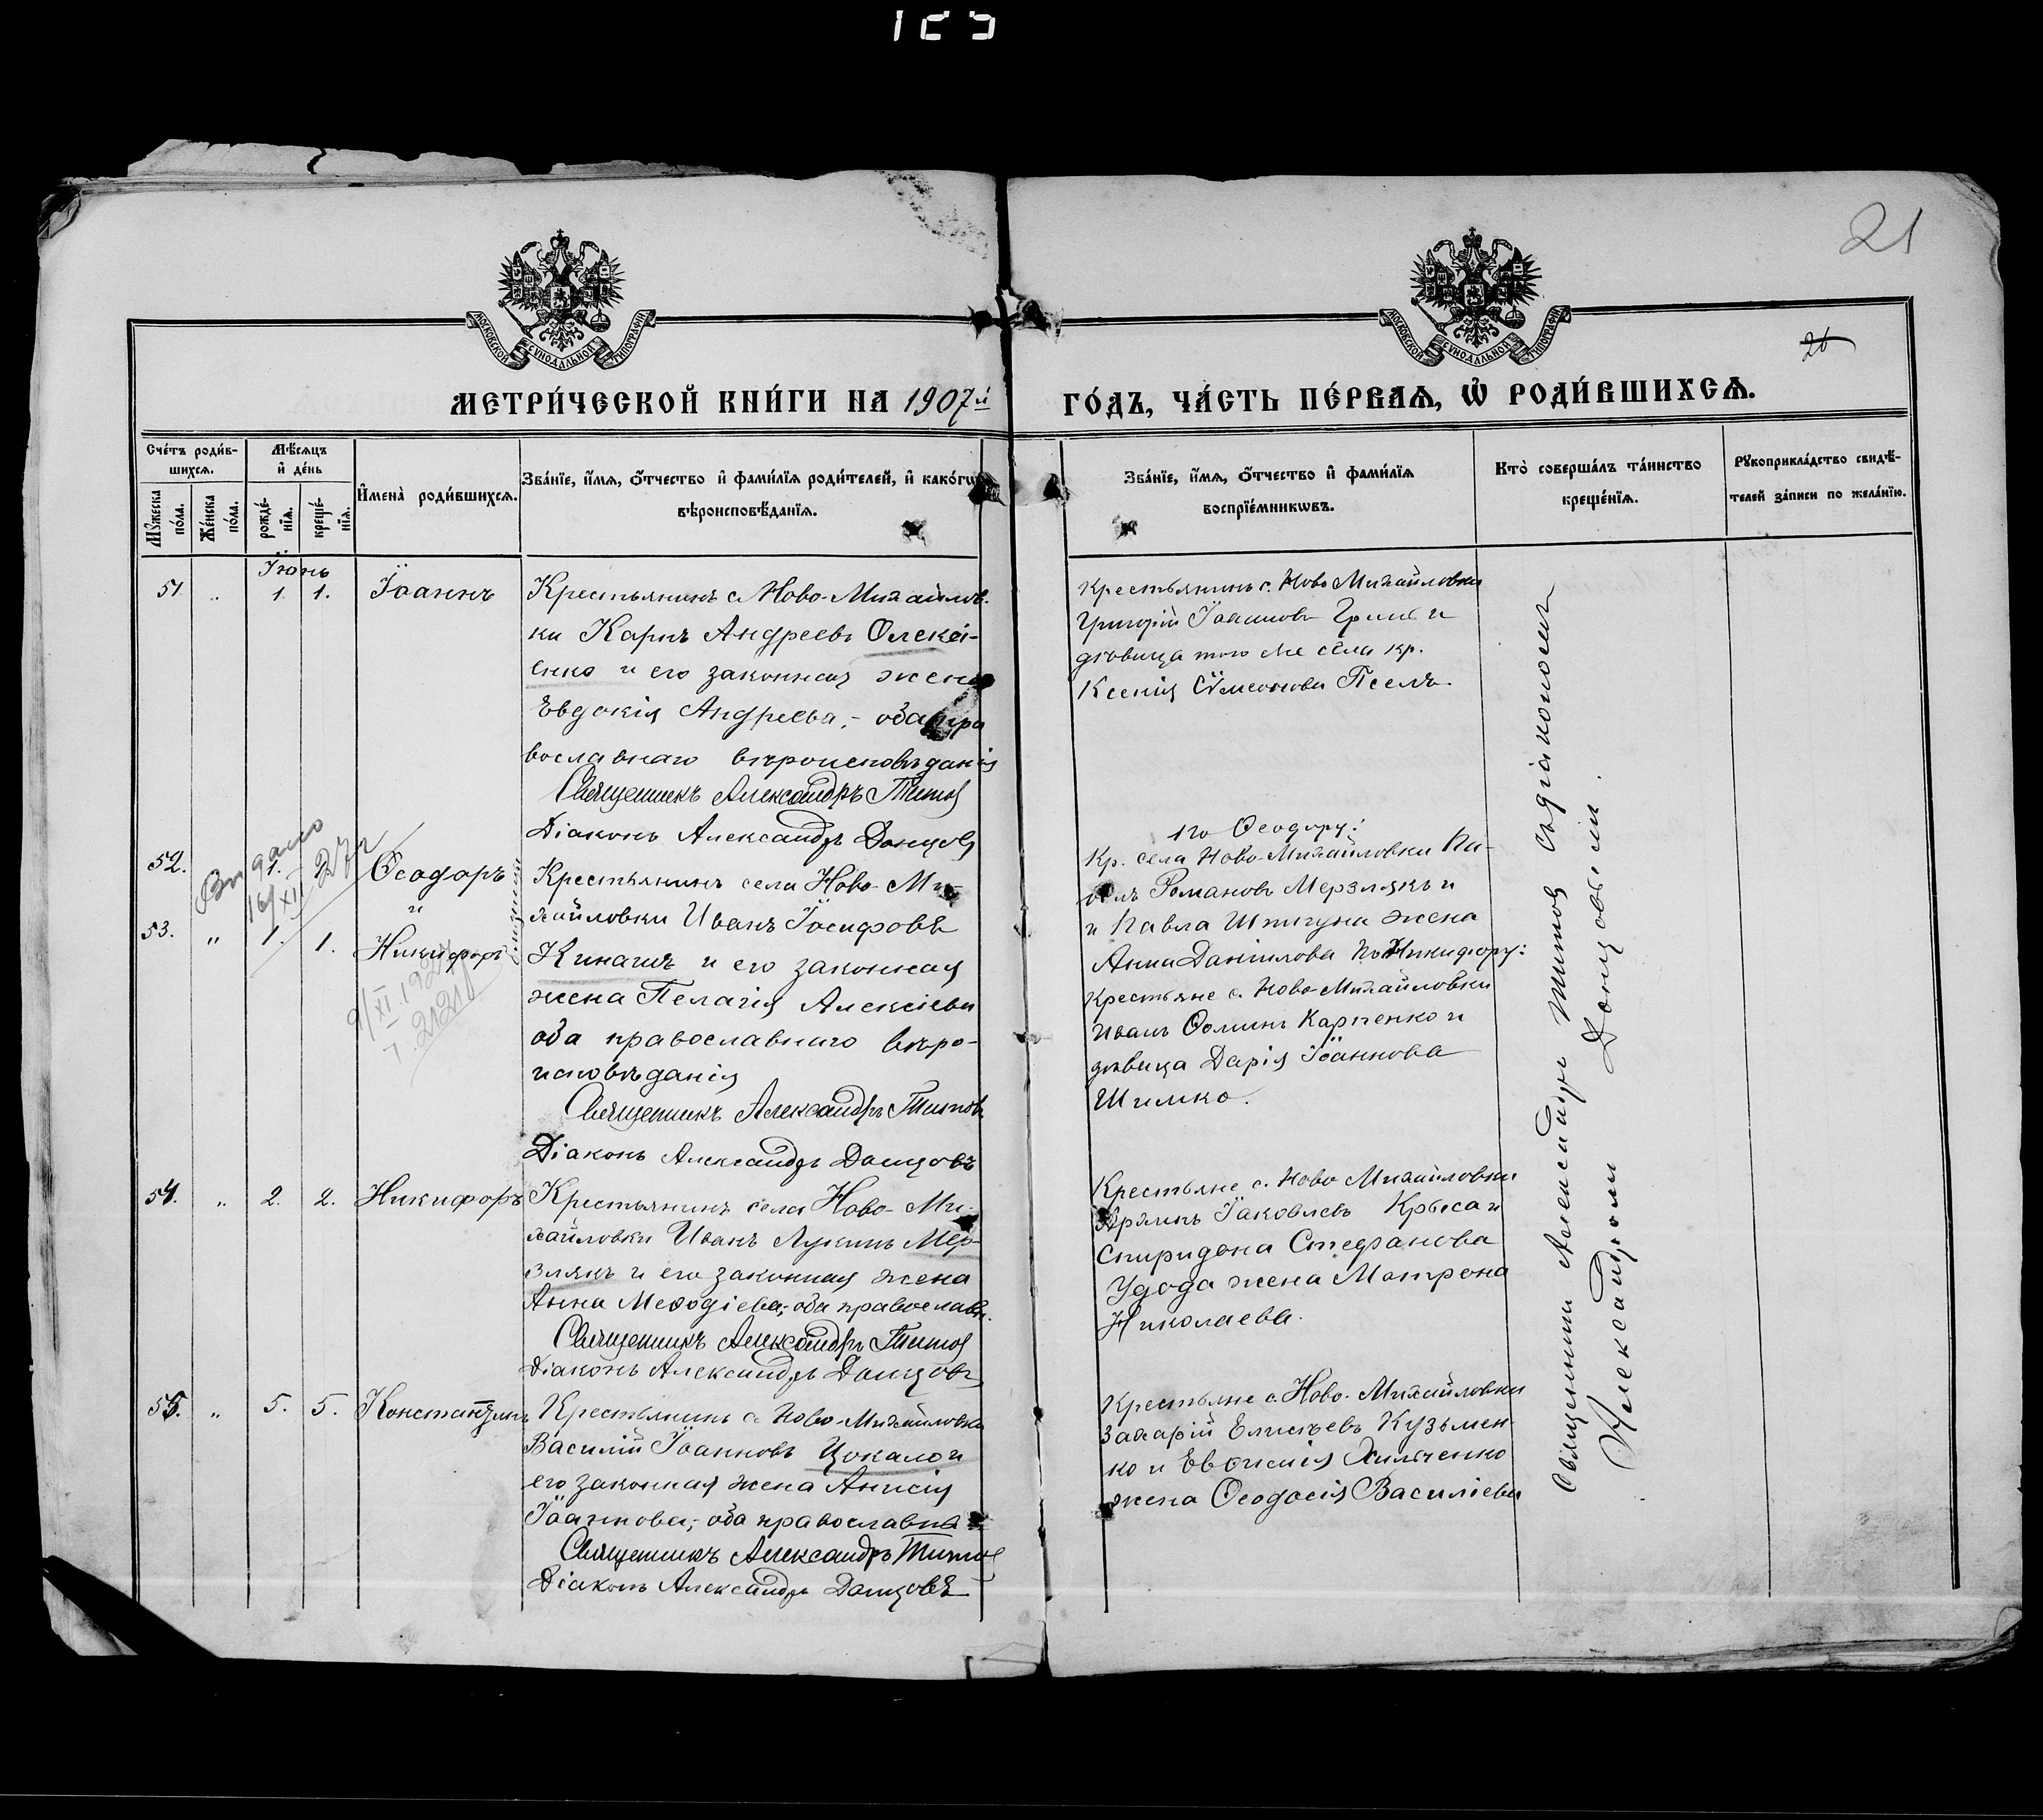 21
26
МОСКОВСКОЙ СѴНОДАЛЬНОЙ ТИПОГРАФІИ
МОСКОВСКОЙ СѴНОДАЛЬНОЙ ТИПОГРАФІИ
МЕТРИ́ЧЕСКОЙ КНИ́ГИ НА 1907й ГО́ДЪ, ЧА́СТЬ ПЕ́РВАЯ, Ѡ РОДИ́ВШИХСѦ.
Сче́тъ роди́в-
шихсѧ.
Мꙋжеска по́ла.
Же́нска по́ла.
Мѣ́сѧцъ
и҆ де́нь
рожде́-
нїѧ.
креще́-
нїѧ.
И҆мена̀ роди́вшихсѧ.
Зва́нїе, и҆́мѧ, ѻ҆́тчество и҆ фами́лїѧ роди́телей, и҆ како́гѡ
вѣроисповѣ́данїѧ.
Зва́нїе, и҆́мѧ, ѻ҆́тчество и҆ фами́лїѧ
воспрїе́мникѡвъ.
Кто̀ соверша́лъ та́инство
креще́нїѧ.
Рꙋкоприкла́дство свидѣ́-
телей за́писи по жела́нїю.
Іюнь
51. „ 1. 1. Іоаннъ
Крестьянинъ с. Ново-Михайлов-
ки Карпъ Андреевъ Олексі-
енко и его законная жена
Евдокія Андреева, - оба пра
вославнаго вѣроисповѣданія
Священникъ Александръ Титов
Діаконъ Александръ Донцов
Крестьянинъ с. Ново Михайловки
Григорій Іоанновъ и
дѣвица того же села кр.
Ксенія Сѵмеонова Пселъ.
52. 1. 1. Ѳеодоръ
и
53. „ 1. 1. Никифоръ
близнецы
Выдано
16/XII 27 г
9/XI.192
Крестьянинъ села Ново-Ми-
хайловки Иванъ Іосифовъ
Кинашъ и его законная
жена Пелагія Алексіева
оба православнаго вѣро-
исповѣданія
Священникъ Александръ Титовъ
Діаконъ Александръ Донцовъ
по Ѳеодору:
Кр. села Ново-Михайловки Па-
велъ Романовъ Мерзлякъ и
и Павла Шпигуна жена
Анна Даніилова по Никифору:
Крестьяне с. Ново-Михайловки
Иванъ Ѳоминъ Карпенко и
дѣвица Дарія Іоаннова
Шимко.
54. „ 2. 2. Никифоръ
Крестьянинъ села Ново-Ми-
хайловки Иванъ Лукинъ Мер-
злякъ и его законная жена
Анна Меѳодіева; оба православн.
Священникъ Александръ Титов
Діаконъ Александръ Донцовъ
Крестьяне с. Ново Михайловки
Іаковлевъ Крыса и
Спиридона Стефанова
Удода жена Матрона
Николаева.
55. „ 5. 5. Константинъ
Крестьянинъ с. Ново-Михайловки
Василій Іоанновъ Цокало и
его законная жена Анисія
Іоаннова; оба православна
Священникъ Александръ Титов
Діаконъ Александръ Донцовъ
Крестьяне с. Ново-Михайловки
Захарій Елисѣевъ Кузьмен-
ко и Евѳимія Хильченко
жена Ѳеодосія Василіева
Священникъ Александръ Титов съ діакономъ
Александромъ Донцовымъ.